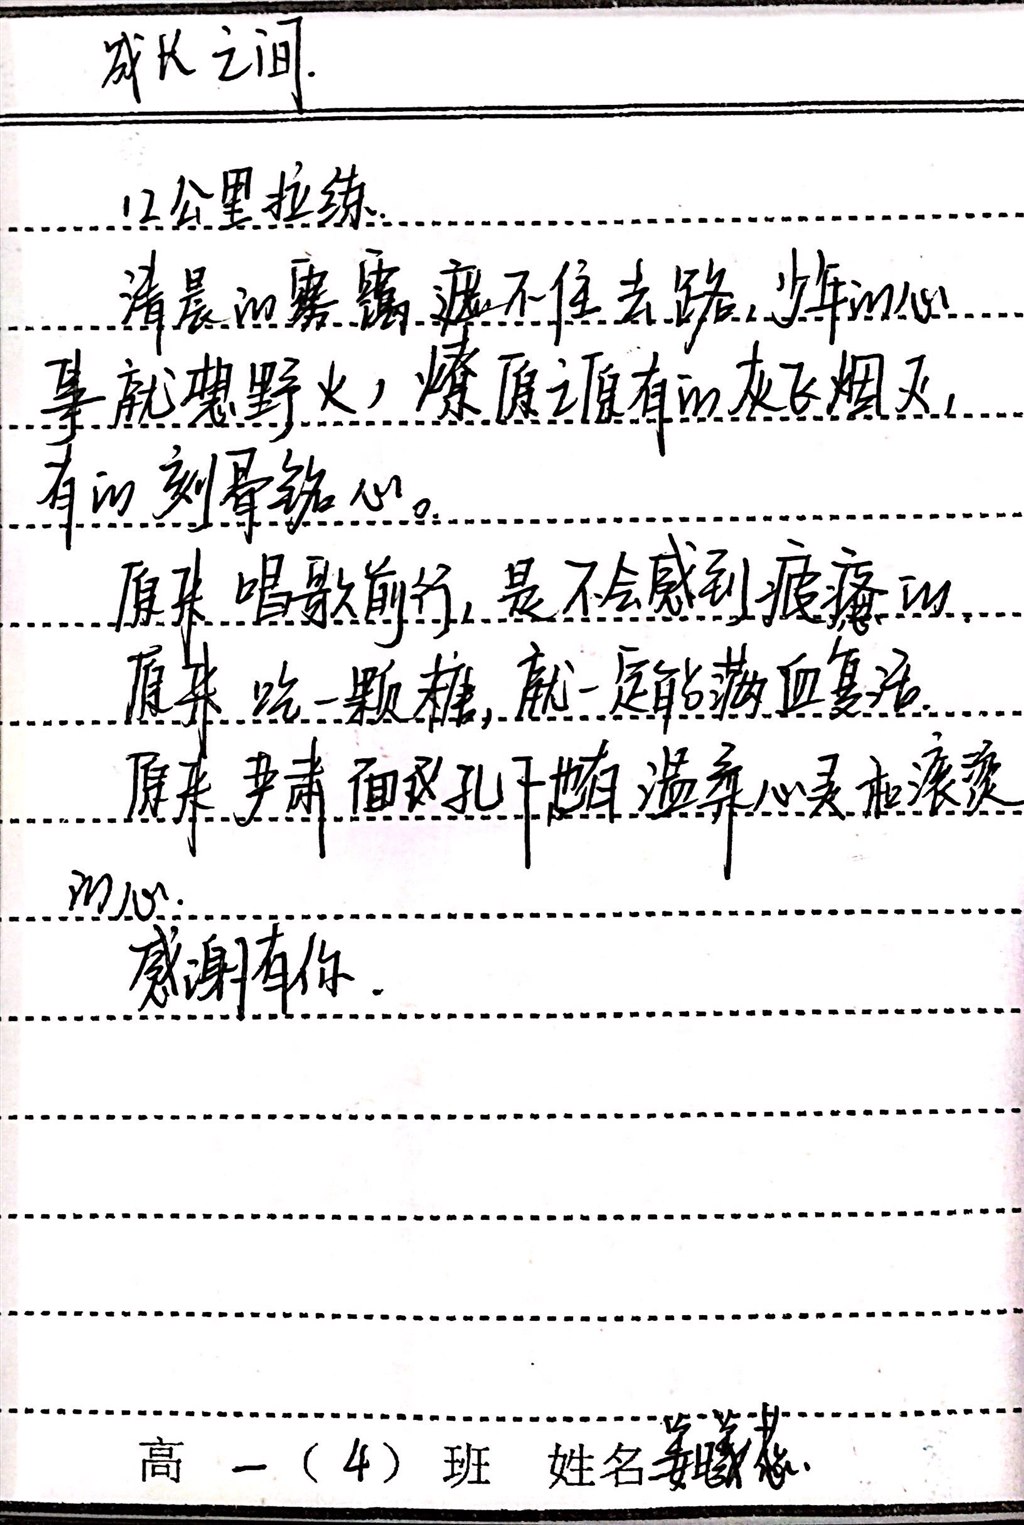 成长之间.
12公里拉练.
清晨的雾霭遮不住去路,少年的心
事就想野火,燎原之后有的灰飞烟灭,
有的刻骨铭心。
原来唱歌前行,是不会感到疲惫的.
原来吃一颗糖,就一定能满血复活.
原来尹肃面孔下也有温柔心灵和滚烫
的心.
感谢有你.
高一(4)班 姓名姜曦